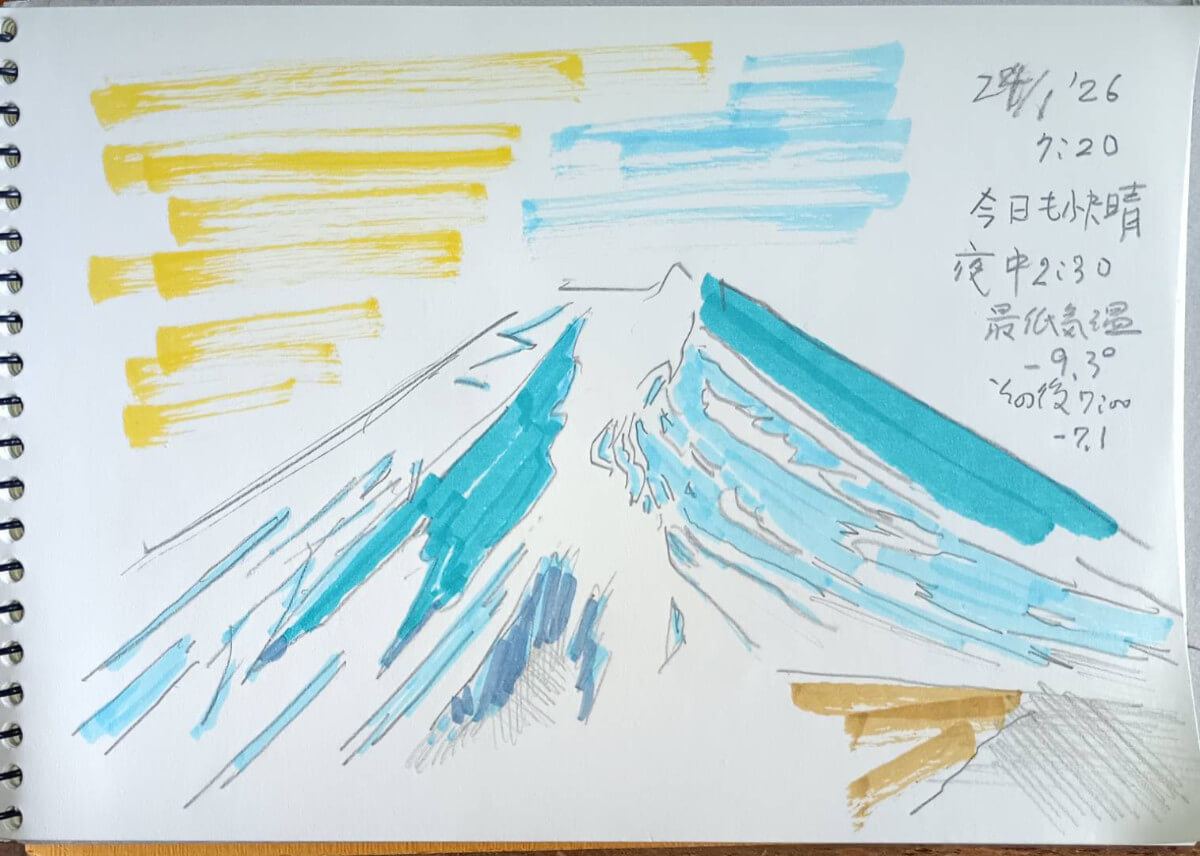 '26
7:20
今日も快晴
夜中2:30
最低気温
-9.3°
その後7:00
-7.1